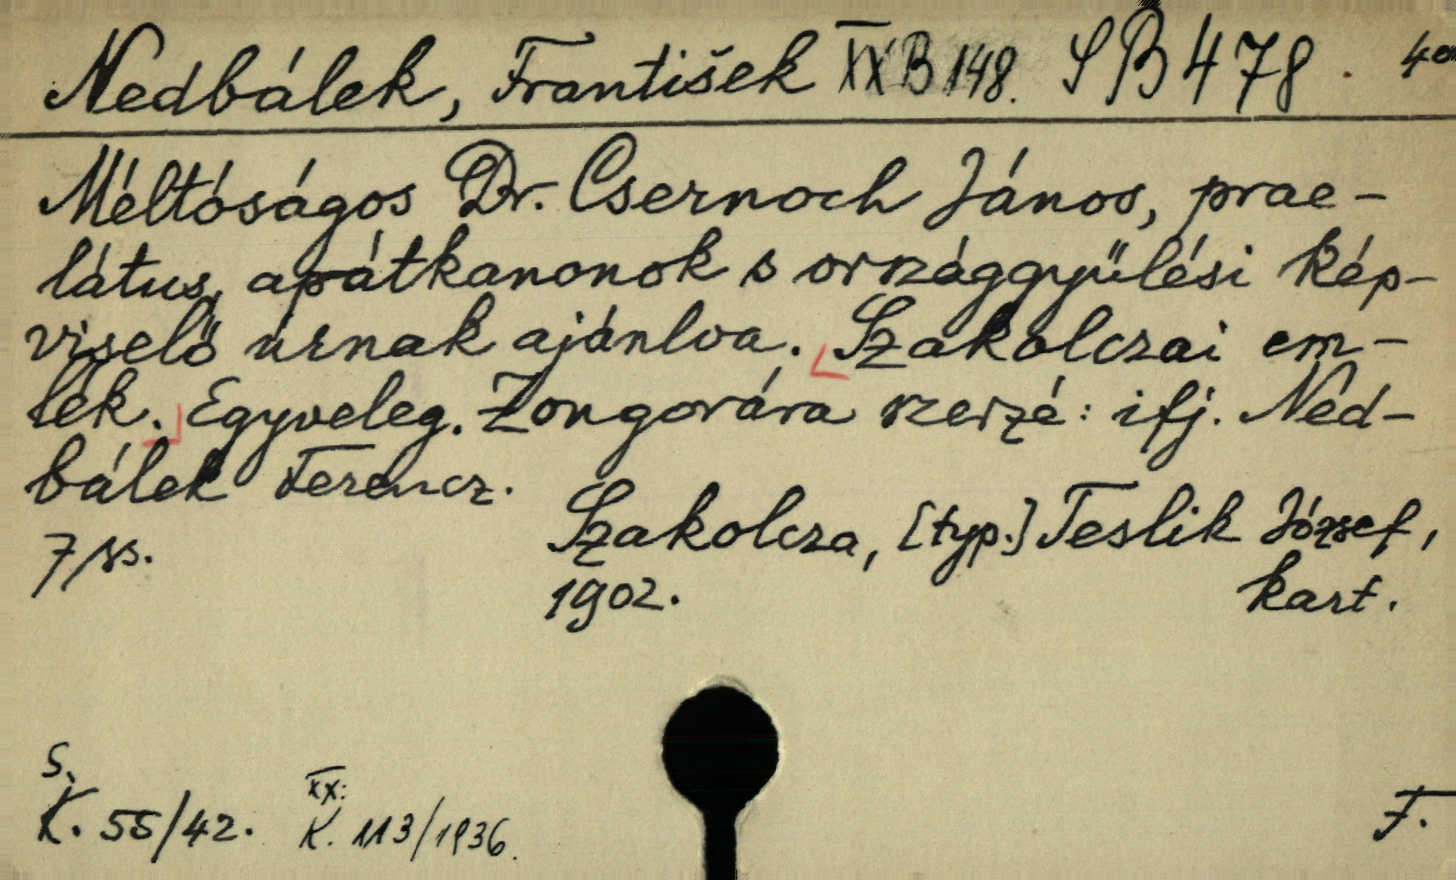 Nedbálek, František XX B 148. SB 478. 40
Méltóságos Dr. Csernoch János, prae-
látus, apátkanonok s országgyűlési kép-
viselő úrnak ajánlva. Szakolczai em-
lék. Egyveleg. Zongorára szerzé: ifj. Ned-
bálek Ferencz.
Szakolcza, [typ.] Teslik József,
7 ss.
1902.
kart.
S.
XX:
K. 55/42. K. 113/1936.
F.